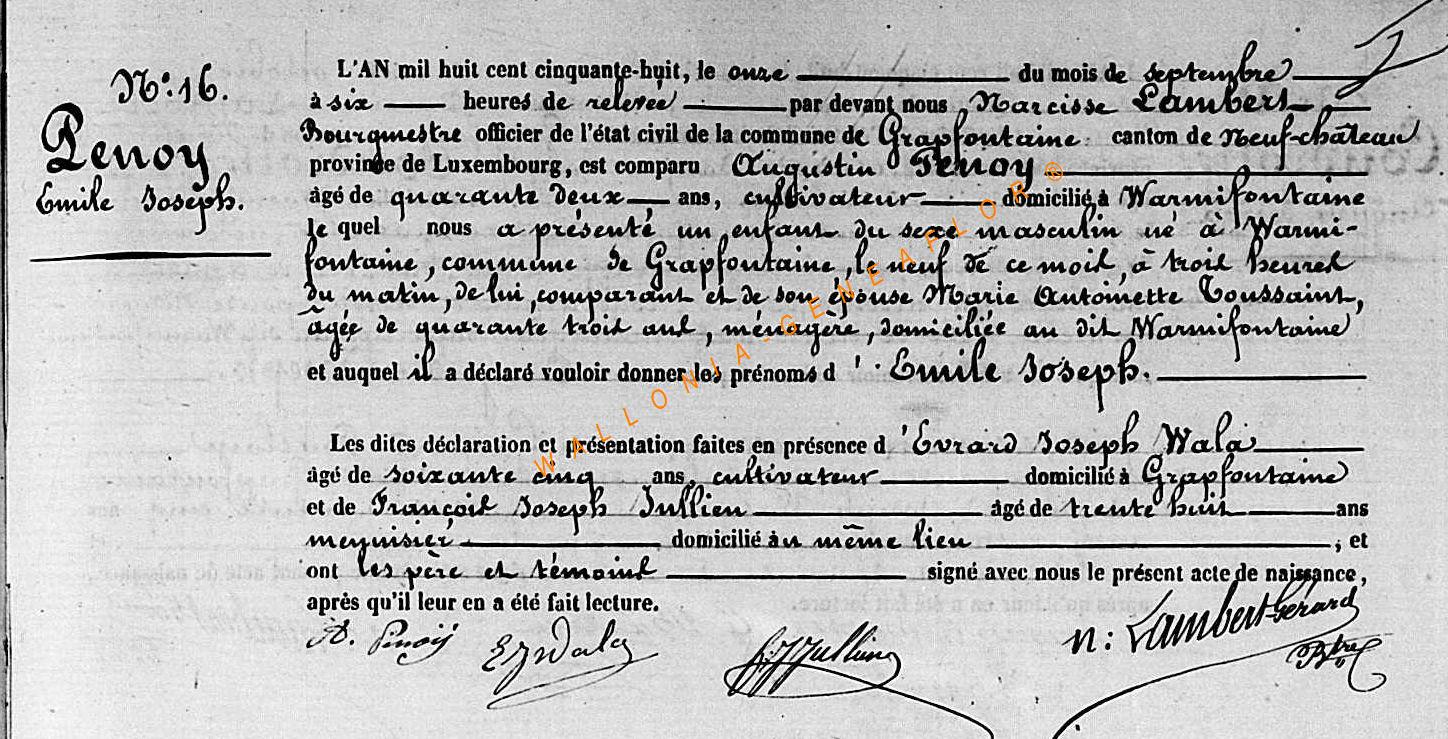 N° 16.
Penoy
Emile Joseph.
L'AN mil huit cent cinquante-huit, le onze du mois de septembre
à six heures de relevée par devant nous, Narcisse Lambert,
Bourgmestre officier de l'état civil de la commune de Grapfontaine canton de Neufchâteau
province de Luxembourg, est comparu Augustin Penoy
âgé de quarante deux ans, cultivateur domicilié à Warmifontaine
le quel nous a présenté un enfant du sexe masculin né à Warmi-
fontaine, commune de Grapfontaine, le neuf de ce mois, à trois heures
du matin, de lui, comparant et de son épouse Marie Antoinette Toussaint,
âgée de quarante trois ans, ménagère, domiciliée au dit Warmifontaine
et auquel il a déclaré vouloir donner les prénoms d'Emile Joseph.
Les dites déclaration et présentation faites en présence d'Evrard Joseph Wala
âgé de soixante cinq ans, cultivateur domicilié à Grapfontaine
et de François Joseph Jullien âgé de trente huit ans
menuisier, domicilié au même lieu, et
ont les père et témoins signé avec nous le présent acte de naissance,
après qu'il leur en a été fait lecture.
A. Penoy EJWala F:J Jullien N: Lambert-Gérard
Btre
WALLONIA-GENEAFLOR ®